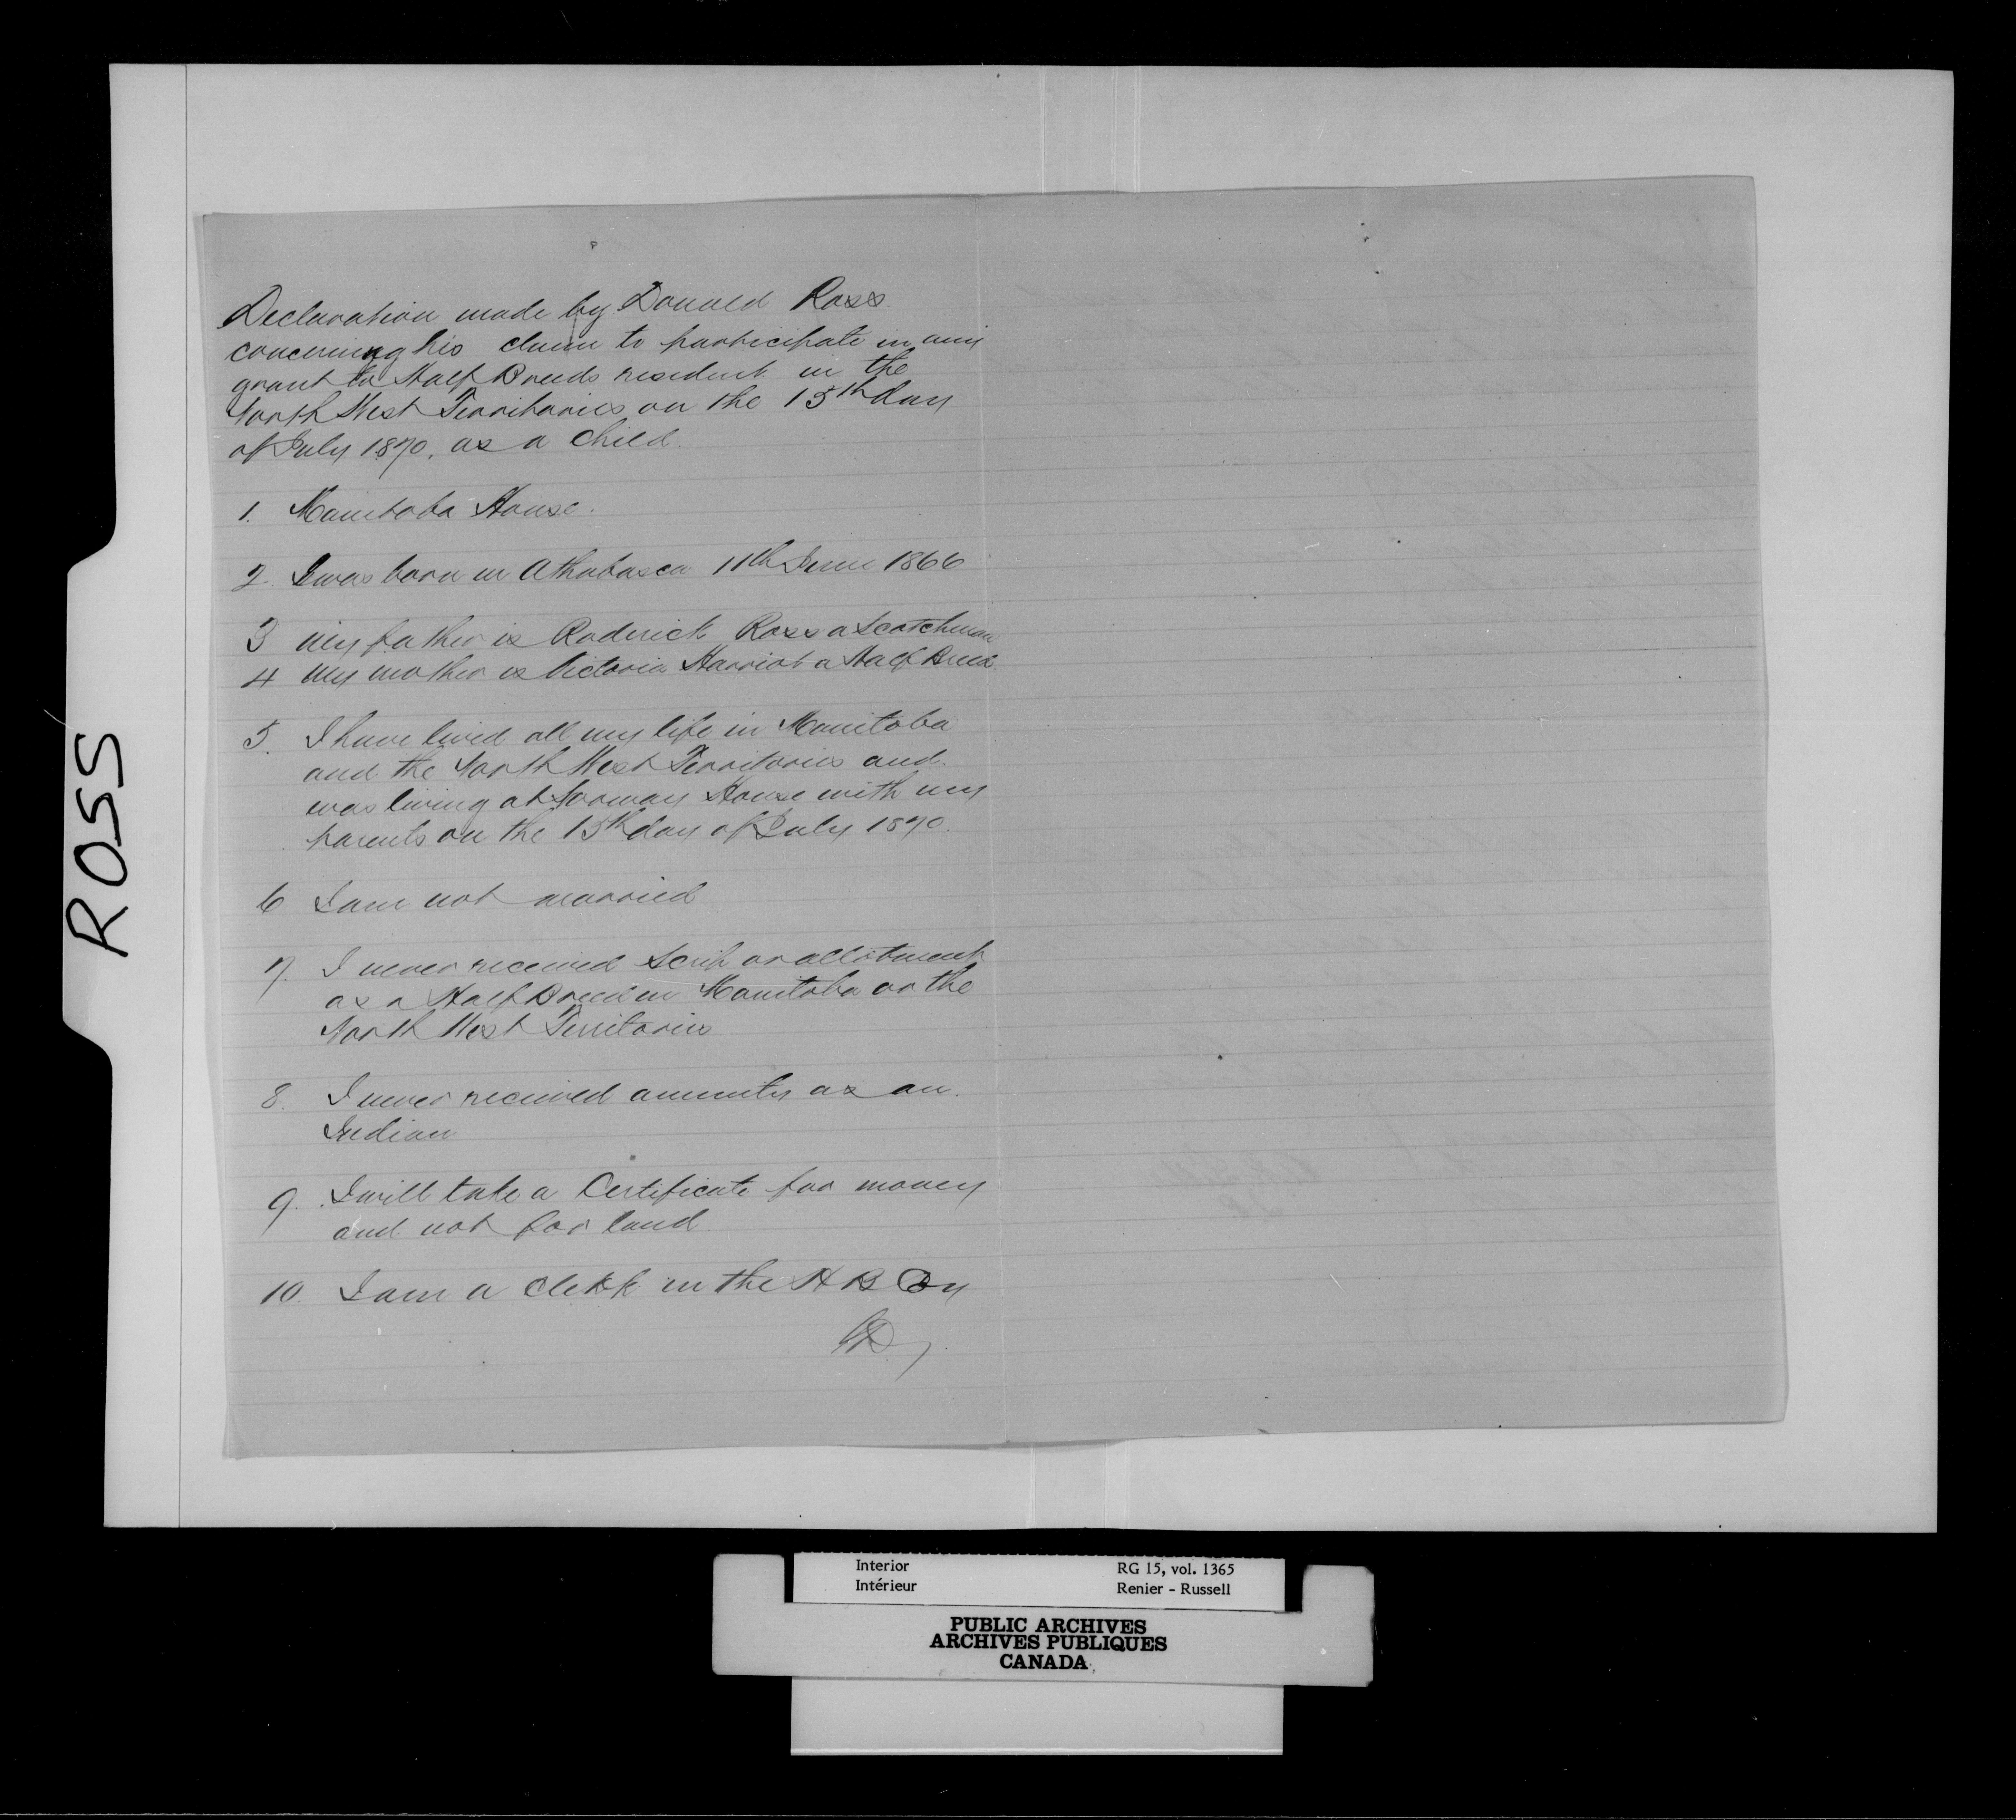 ROSS
Declaration made by Donald Ross
concerning his claim to participate in any
grant to Half Breeds resident in the
North West Territories on the 15th day
of July 1870, as a child.
1. Manitoba House.
2. I was born in Athabasca 11th June 1866
3 My father is Roderick Ross a Scotchman
4 My mother is Victoria Harriot a Half Breed.
5. I have lived all my life in Manitoba
and the North West Territories and
was living at Norway House with my
parents on the 15th day of July 1870.
6 I am not married
7. I never received Scrip or allotment
as a Half Breed in Manitoba or the
North West Territories
8. I never received annuity as an
Indian
9. I will take a Certificate for money
and not for land.
10. I am a clerk in the H B Coy
Interior
Intérieur
RG 15, vol. 1365
Renier - Russell
PUBLIC ARCHIVES
ARCHIVES PUBLIQUES
CANADA